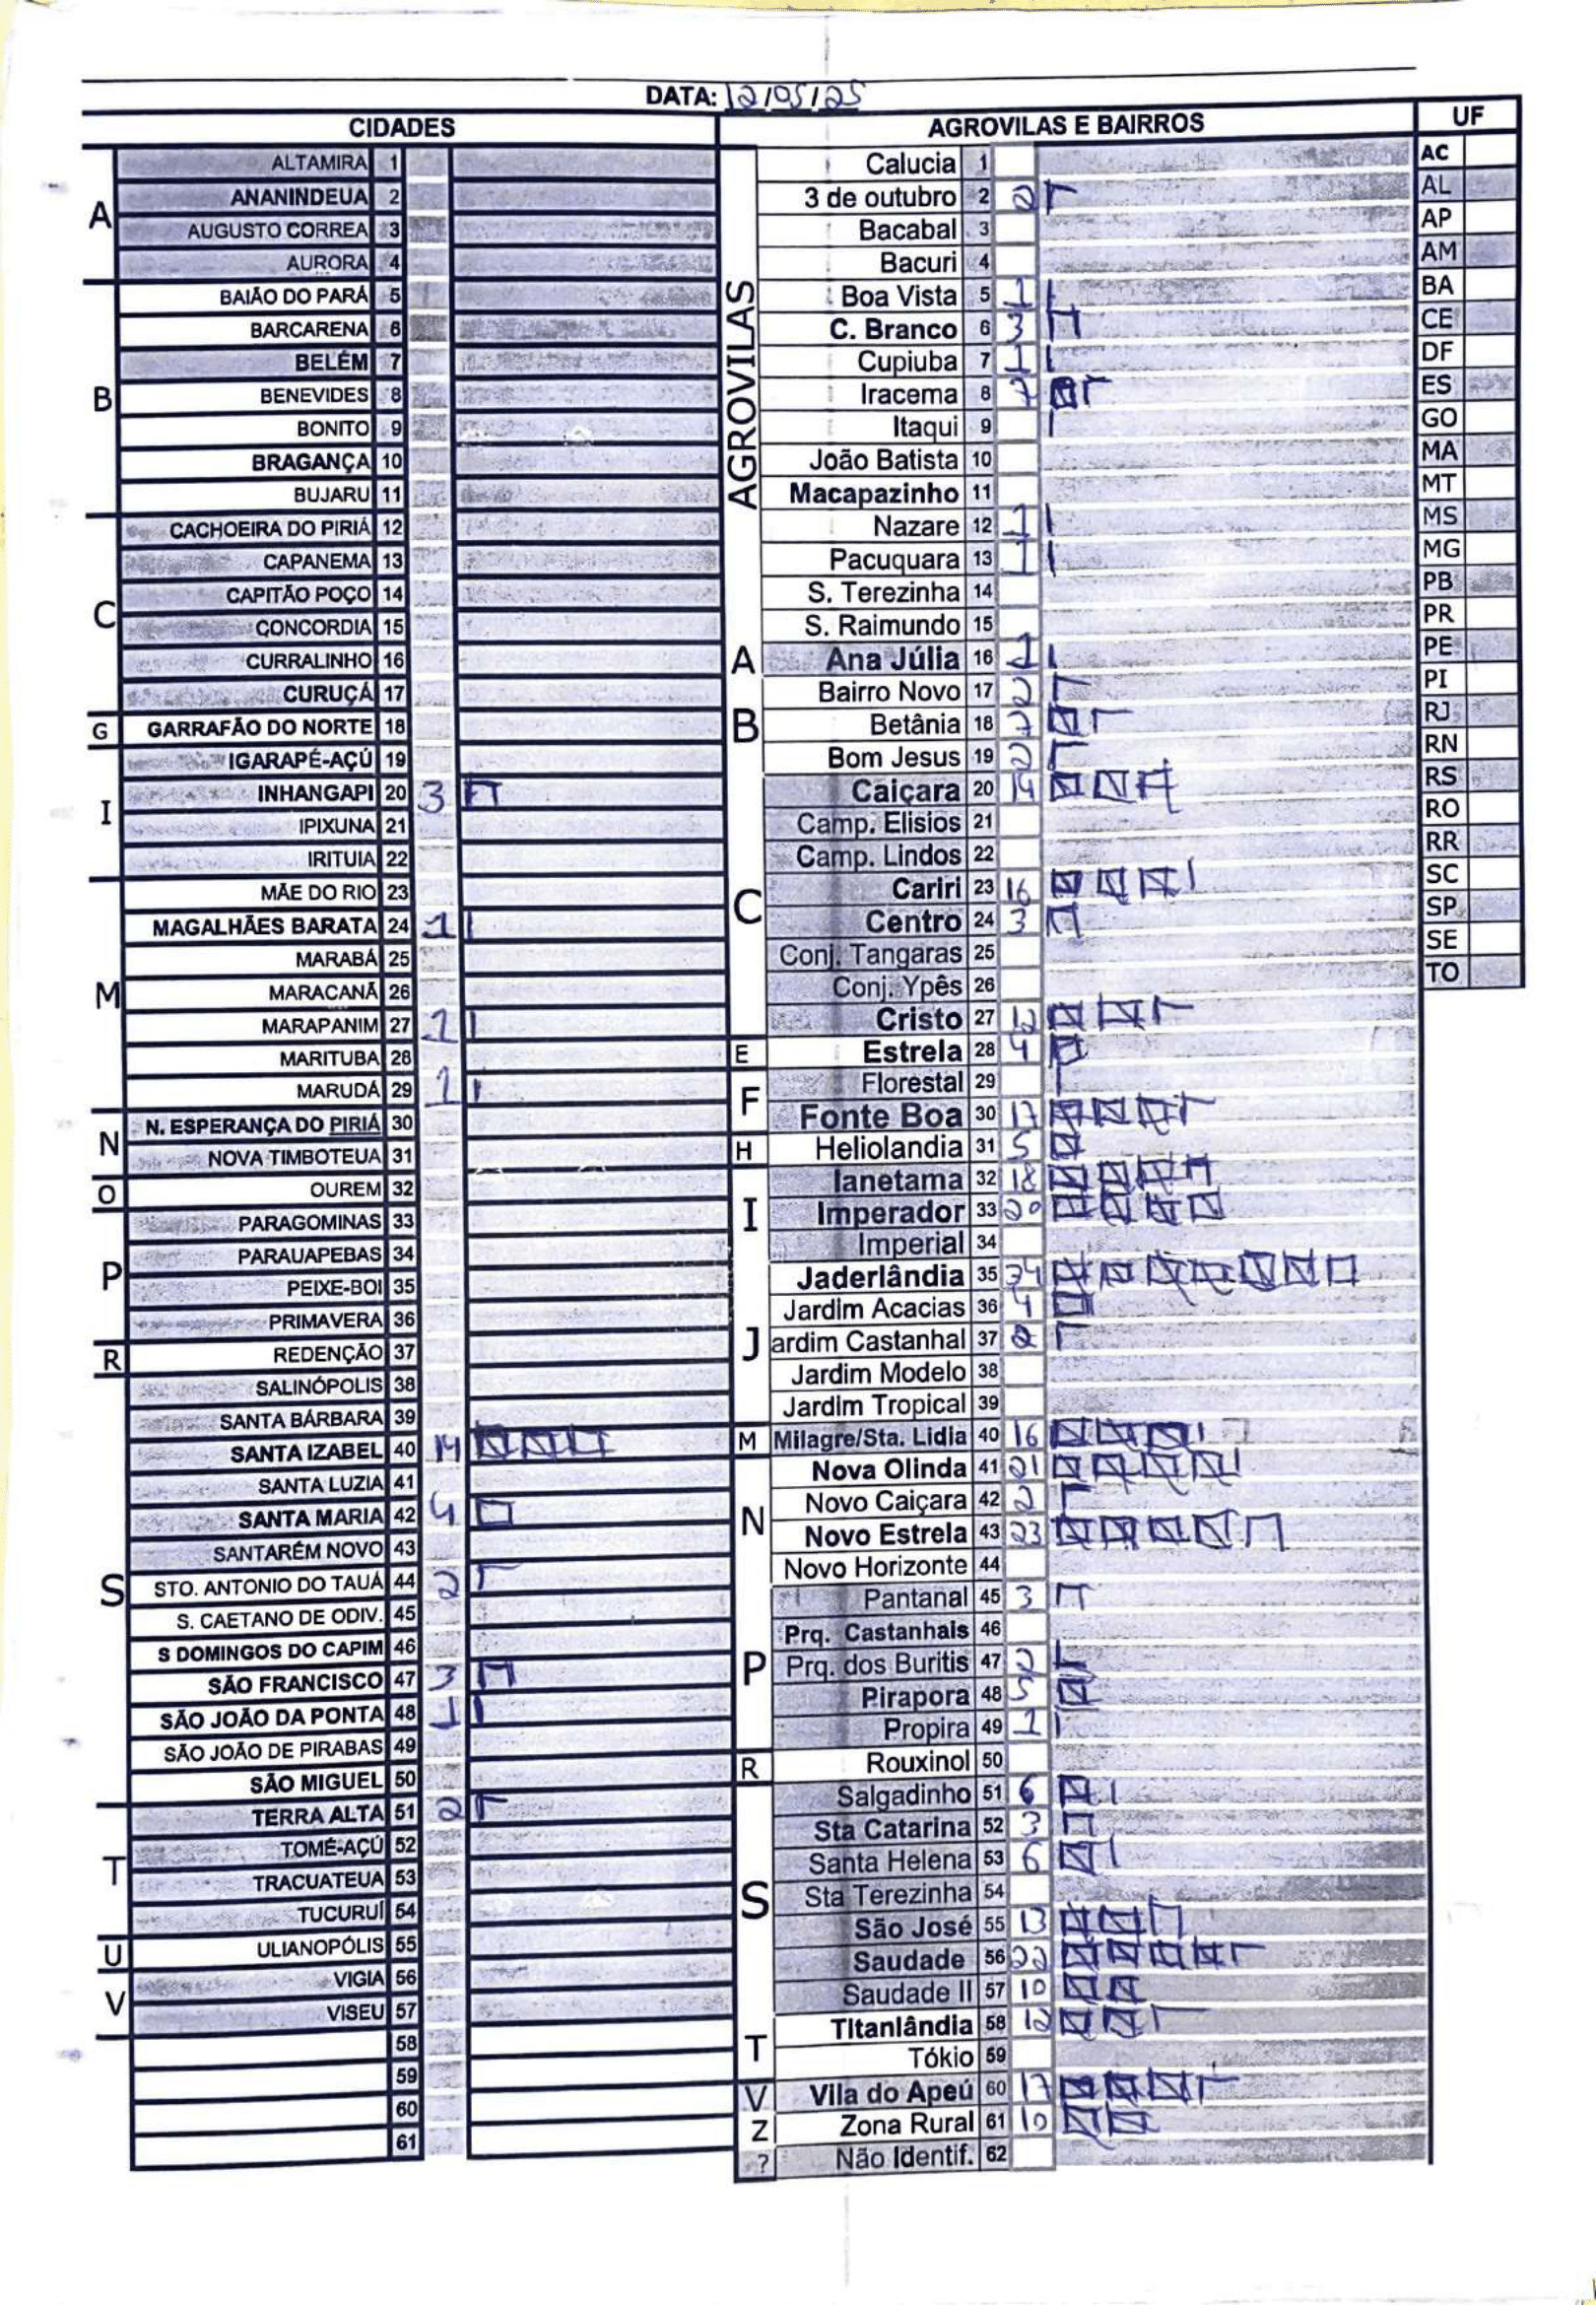 DATA: 12/05/25
CIDADES
A
ALTAMIRA 1
ANANINDEUA 2
AUGUSTO CORREA 3
AURORA 4
B
BAIÃO DO PARÁ 5
BARCARENA 6
BELÉM 7
BENEVIDES 8
BONITO 9
BRAGANÇA 10
BUJARU 11
C
CACHOEIRA DO PIRIÁ 12
CAPANEMA 13
CAPITÃO POÇO 14
CONCORDIA 15
CURRALINHO 16
CURUÇÁ 17
G
GARRAFÃO DO NORTE 18
I
IGARAPÉ-AÇÚ 19
INHANGAPI 20 3
IPIXUNA 21
IRITUIA 22
M
MÃE DO RIO 23
MAGALHÃES BARATA 24 1
MARABÁ 25
MARACANÃ 26
MARAPANIM 27 1
MARITUBA 28
MARUDÁ 29 1
N
N. ESPERANÇA DO PIRIÁ 30
NOVA TIMBOTEUA 31
O
OUREM 32
P
PARAGOMINAS 33
PARAUAPEBAS 34
PEIXE-BOI 35
PRIMAVERA 36
R
REDENÇÃO 37
S
SALINÓPOLIS 38
SANTA BÁRBARA 39
SANTA IZABEL 40 14
SANTA LUZIA 41
SANTA MARIA 42 4
SANTARÉM NOVO 43
STO. ANTONIO DO TAUÁ 44 2
S. CAETANO DE ODIV. 45
S DOMINGOS DO CAPIM 46
SÃO FRANCISCO 47 3
SÃO JOÃO DA PONTA 48 1
SÃO JOÃO DE PIRABAS 49
SÃO MIGUEL 50
T
TERRA ALTA 51 2
TOMÉ-AÇÚ 52
TRACUATEUA 53
TUCURUÍ 54
U
ULIANOPÓLIS 55
V
VIGIA 56
VISEU 57
58
59
60
61
AGROVILAS E BAIRROS
AGROVILAS
Calucia 1
3 de outubro 2 2
Bacabal 3
Bacuri 4
Boa Vista 5 1
C. Branco 6 3
Cupiuba 7 1
Iracema 8 7
Itaqui 9
João Batista 10
Macapazinho 11
Nazare 12 1
Pacuquara 13 1
S. Terezinha 14
S. Raimundo 15
A
Ana Júlia 16 1
B
Bairro Novo 17 2
Betânia 18 7
Bom Jesus 19 2
C
Caiçara 20 14
Camp. Elisios 21
Camp. Lindos 22
Cariri 23 16
Centro 24 3
Conj. Tangaras 25
Conj. Ypês 26
Cristo 27 12
E
Estrela 28 4
F
Florestal 29
Fonte Boa 30 17
H
Heliolandia 31 5
I
Ianetama 32 18
Imperador 33 20
Imperial 34
J
Jaderlândia 35 34
Jardim Acacias 36 4
ardim Castanhal 37 2
Jardim Modelo 38
Jardim Tropical 39
M
Milagre/Sta. Lidia 40 16
N
Nova Olinda 41 21
Novo Caiçara 42 2
Novo Estrela 43 23
Novo Horizonte 44
P
Pantanal 45 3
Prq. Castanhais 46
Prq. dos Buritis 47 2
Pirapora 48 5
Propira 49 1
R
Rouxinol 50
S
Salgadinho 51 6
Sta Catarina 52 3
Santa Helena 53 6
Sta Terezinha 54
São José 55 13
Saudade 56 22
Saudade II 57 10
T
Titanlândia 58 12
Tókio 59
V
Vila do Apeú 60 17
Z
Zona Rural 61 10
?
Não Identif. 62
UF
AC
AL
AP
AM
BA
CE
DF
ES
GO
MA
MT
MS
MG
PB
PR
PE
PI
RJ
RN
RS
RO
RR
SC
SP
SE
TO